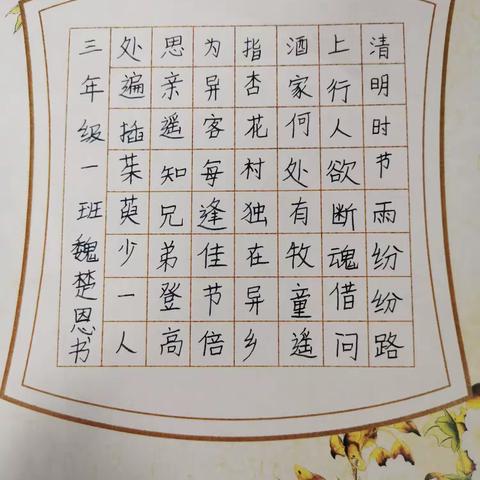 清明时节雨纷纷路
上行人欲断魂借问
酒家何处有牧童遥
指杏花村独在异乡
为异客每逢佳节倍
思亲遥知兄弟登高
处遍插茱萸少一人
三年级一班魏楚恩书